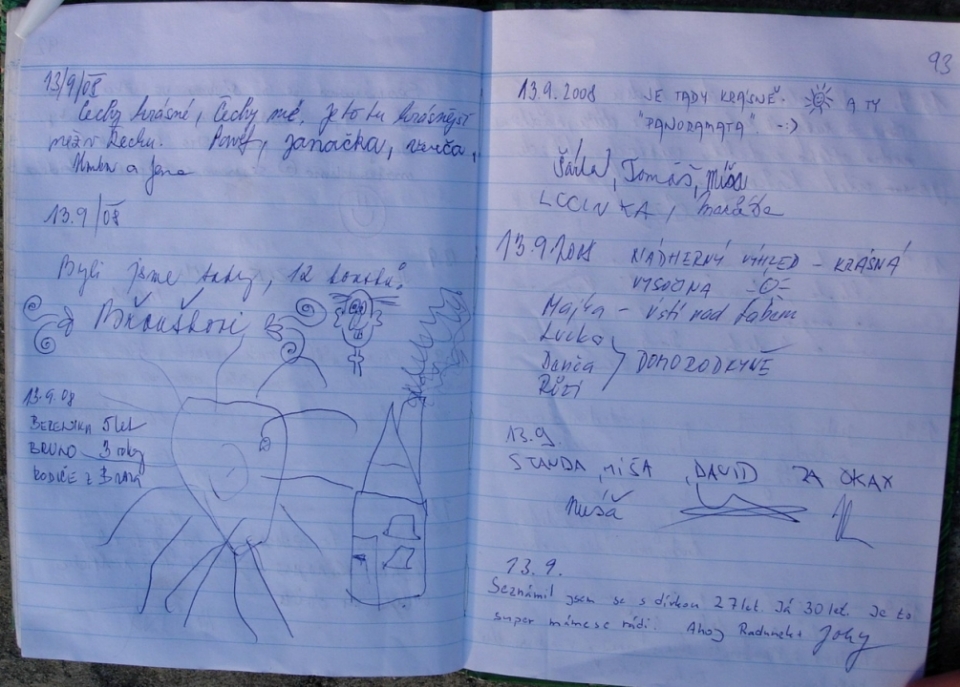 13/9/08
Čechy krásné, Čechy mé. Je to tu krásnější
než v Řecku. Pavel, Janačka, Verča,
a Jana
13.9/08
Byli jsme tady, 12 koňská.
Broučkovi
13.9.08
BERENIKA 5 let
BRUNO 3 roky
RODIČE z Brna
93
13.9.2008 JE TADY KRÁSNĚ. A TY
"PANORAMATA" :-)
Šárka, Tomáš, Míša
LUCINKA, Maruška
13.9.2008 NÁDHERNÝ VÝHLED - KRÁSNÁ
VYSOČINA
Majka - Ústí nad Labem
Lucka
Danča DOMORODKYNĚ
Růži
13.9.
STANDA, MÍŠA, DAVID ZA OKAX
Míša
13.9.
Seznámil jsem se s dívkou 27 let. Já 30 let. Je to
super máme se rádi. Ahoj Radunko Joky